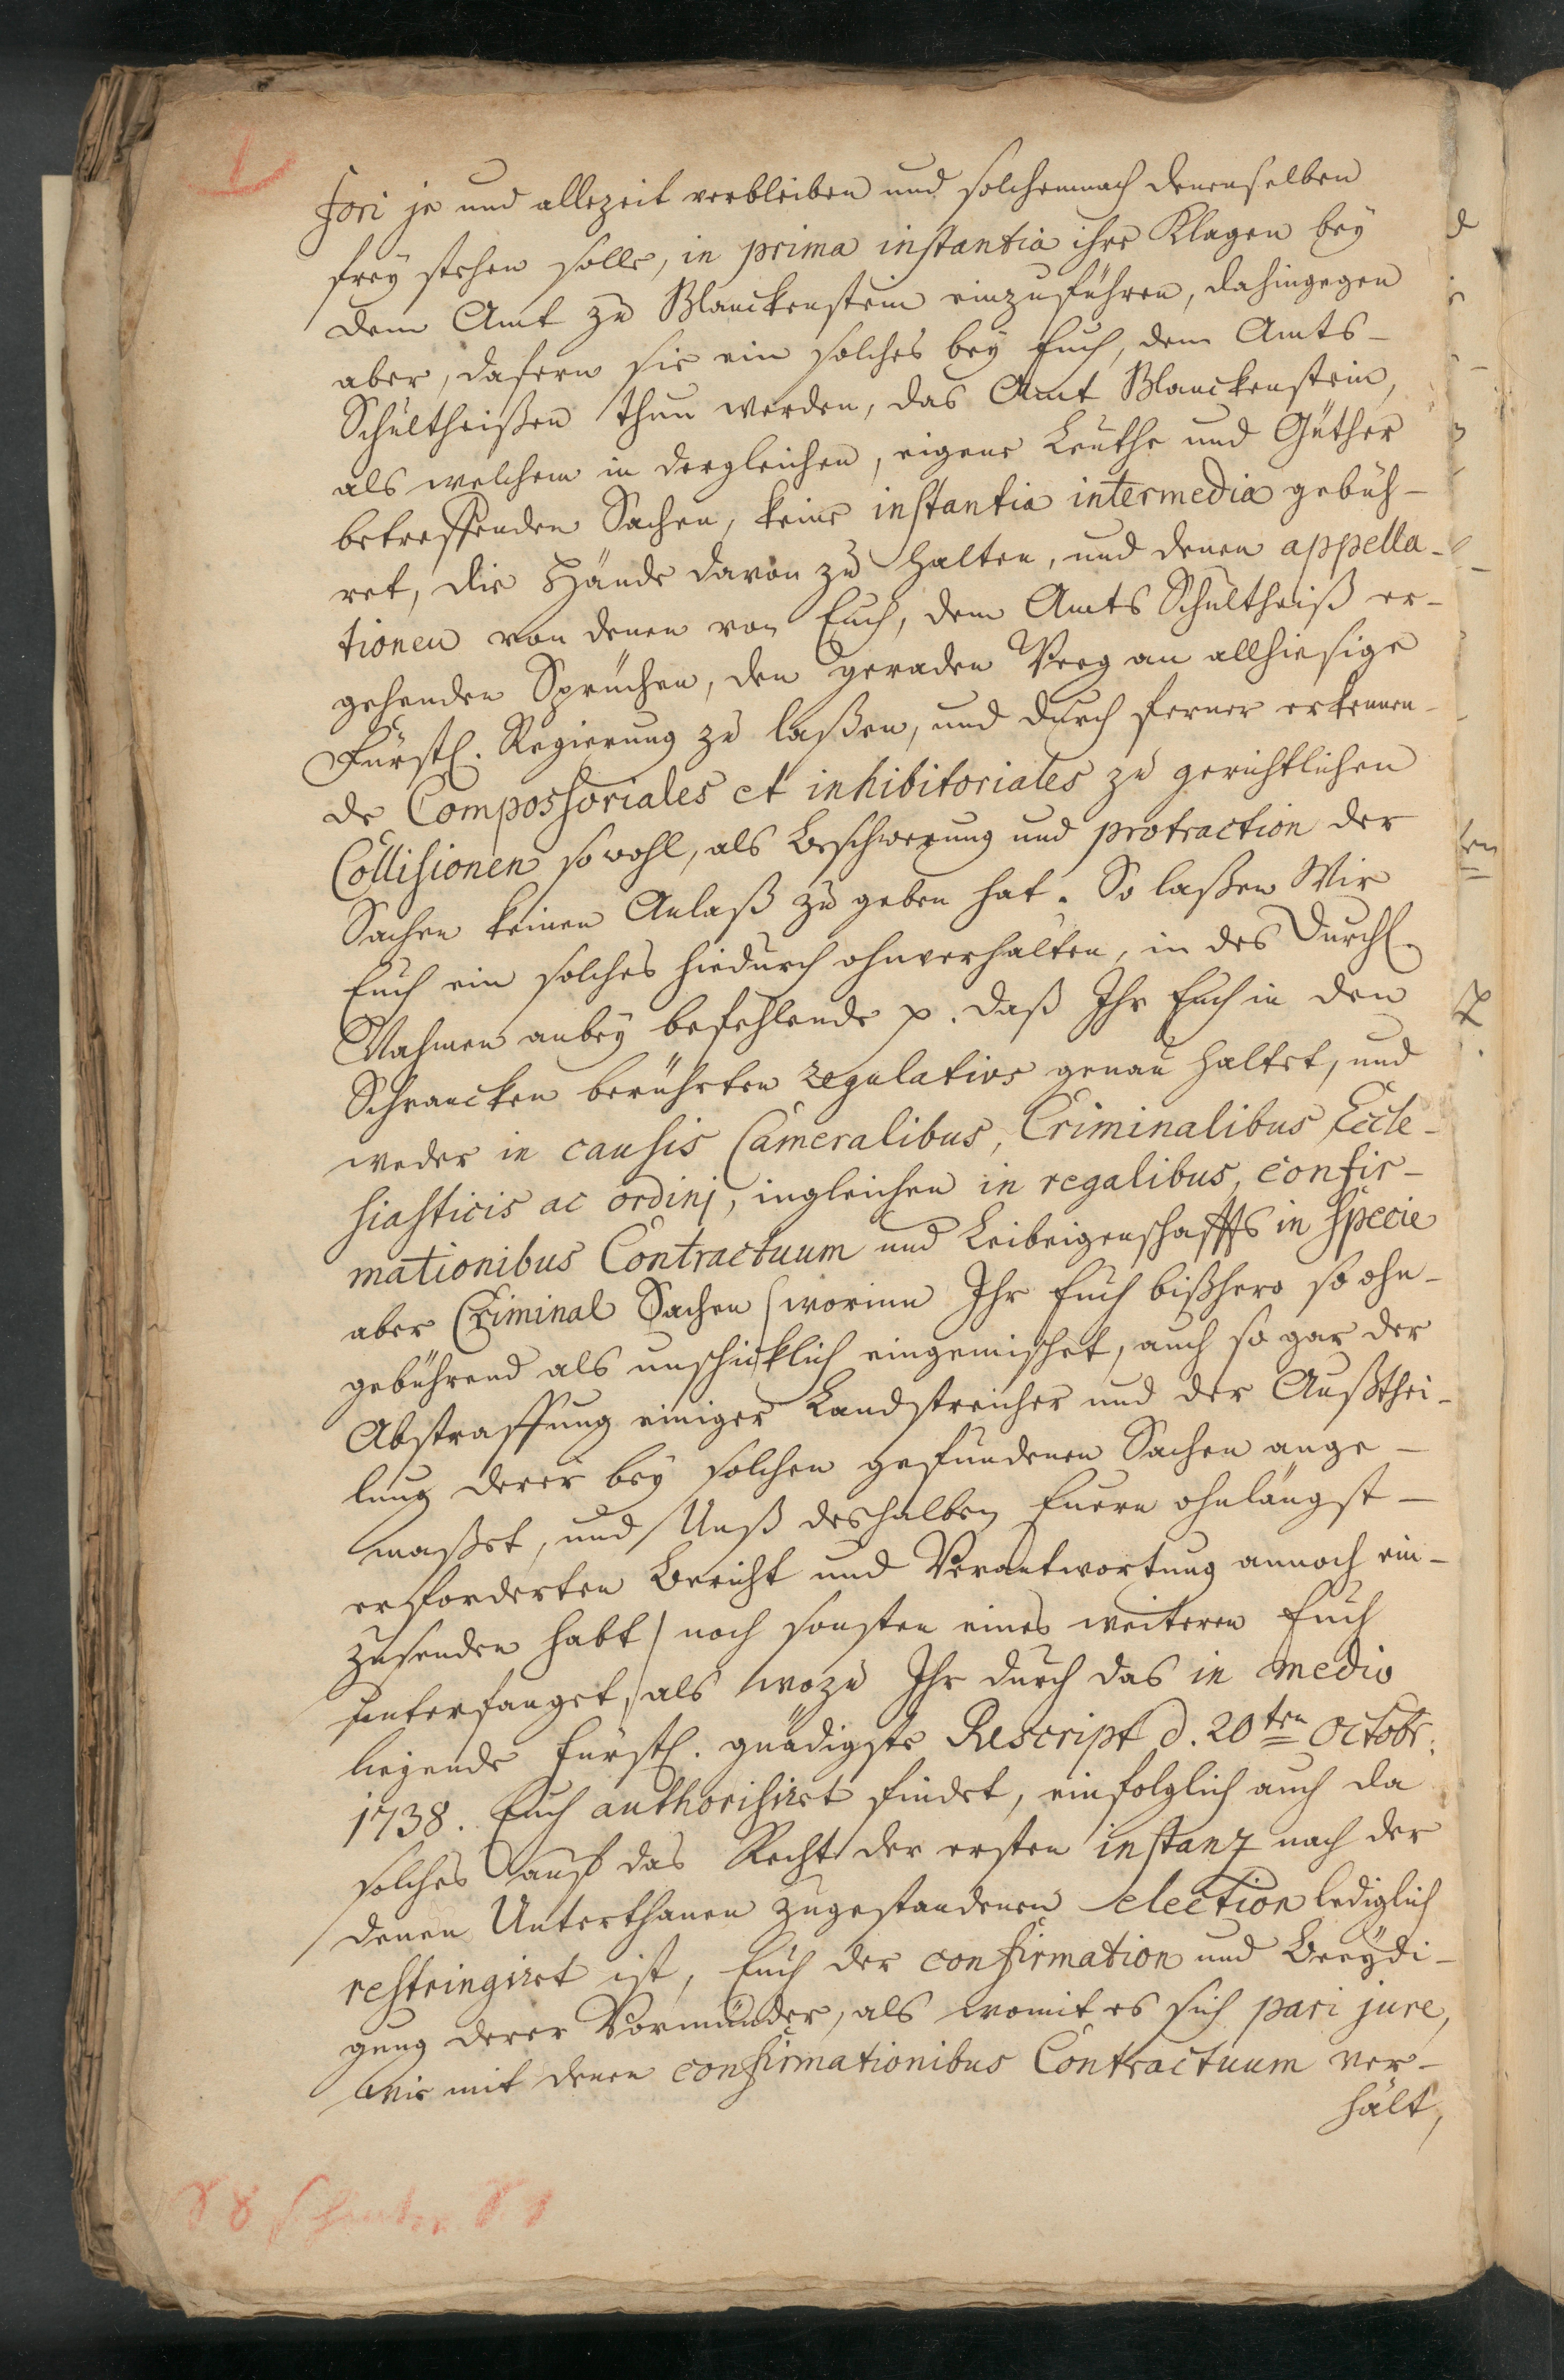 fori je und allezeit verbleiben und solchemnach denenselben
frey stehen solle, in prima instantia ihre Klagen bey
dem Amt zu Blanckenstein einzuführen, dahingegen
aber, dafern sie ein solches bey Euch, dem Amts-
Schultheißen thun werden, das Amt Blanckenstein,
als welchem in dergleichen, eigene Leuthe und Güther
betreffenden Sachen, keine instantia intermedia gebüh-
ret, die Hände davon zu halten, und denen appella-
tionen von denen von Euch, dem Amts Schultheiß er-
gehenden Sprüchen, den geraden Weeg an allhiesige
Fürstl. Regierung zu laßen, und durch ferner erkennen-
de Compossoriales et inhibitoriales zu gerichtlichen
Collisionen sowohl, als Beschwerung und protraction der
Sachen keinen Anlaß zu geben hat. So laßen Wir
Euch ein solches hiedurch ohnverhalten, in des Durchl.
Nahmen anbey befehlende p. daß Ihr Euch in den
Schrancken berührten regulativs genau haltet, und
weder in causis Cameralibus, Criminalibus Eccle-
siasticis ac ordinj, ingleichen in regalibus, confir-
mationibus Contractuum und Leibeigenschaffts in specie
aber Criminal Sachen (worinn Ihr Euch bißhero so ohn-
gebührend als unschicklich eingemischet, auch so gar der
Abstraffung einiger Landstreicher und der Außthei-
lung derer bey solchen gefundenen Sachen ange-
maßet, und Unß deshalben Euern ohnlängst-
erforderten Bericht und Verantwortung annoch ein-
zusenden habt) noch sonsten eines weiteren Euch
unterfanget, als wozu Ihr durch das in medio
liegende Fürstl. gnädigste Rescript d. 20ten Octobr.
1738. Euch authorisiret findet, einfolglich auch da
solches auf das Recht der ersten instanz nach der
denen Unterthanen zugestandenen election lediglich
restringiret ist, Euch der confirmation und Beeydi-
gung derer Vormünder, als womit es sich pari jure,
wie mit denen confirmationibus Contractuum ver-
hält,